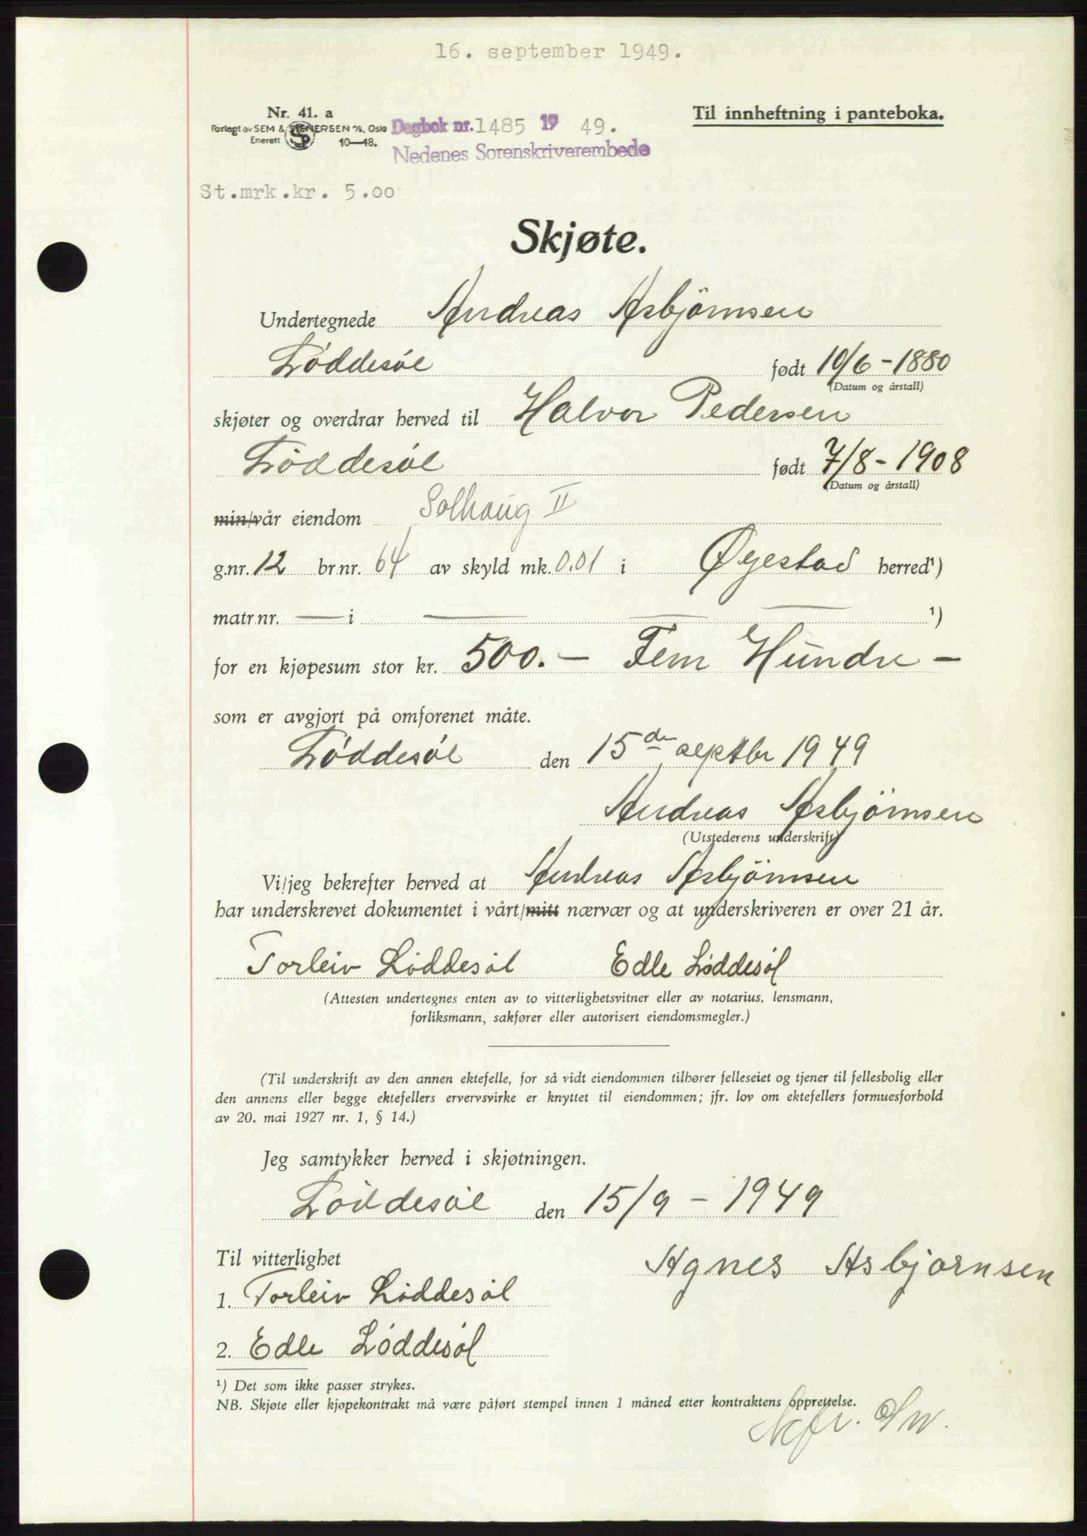 16. september 1949.
Nr. 41. a
Til innheftning i panteboka.
Forlagt av SEM & STENERSEN A/S, Oslo
Enerett SP 10—48.
Dagbok nr. 1485 19 49.
Nedenes Sorenskriverembede
St.mrk.kr. 5.00
Skjøte.
Undertegnede Andreas Asbjörnsen
Løddesøl født 10/6 - 1880
(Datum og årstall)
skjøter og overdrar herved til Halvor Pedersen
Løddesøl født 7/8 - 1908
(Datum og årstall)
min/vår eiendom Solhaug II
g.nr. 12 br.nr. 64 av skyld mk. 0.01 i Øyestad herred¹)
matr.nr. — i — — — ¹)
for en kjøpesum stor kr. 500.— Fem Hundre —
som er avgjort på omforenet måte.
Løddesøl den 15de septbr 1949
Andreas Asbjörnsen
(Utstederens underskrift)
Vi/jeg bekrefter herved at Andreas Asbjörnsen
har underskrevet dokumentet i vårt/mitt nærvær og at underskriveren er over 21 år.
Torleiv Løddesøl Edle Løddesøl
(Attesten undertegnes enten av to vitterlighetsvitner eller av notarius, lensmann,
forliksmann, sakfører eller autorisert eiendomsmegler.)
(Til underskrift av den annen ektefelle, for så vidt eiendommen tilhører felleseiet og tjener til fellesbolig eller
den annens eller begge ektefellers ervervsvirke er knyttet til eiendommen; jfr. lov om ektefellers formuesforhold
av 20. mai 1927 nr. 1, § 14.)
Jeg samtykker herved i skjøtningen.
Løddesøl den 15/9 - 1949
Til vitterlighet
Agnes Asbjørnsen
1. Torleiv Løddesøl
2. Edle Løddesøl
¹) Det som ikke passer strykes.
NB. Skjøte eller kjøpekontrakt må være påført stempel innen 1 måned etter kontraktens opprettelse.